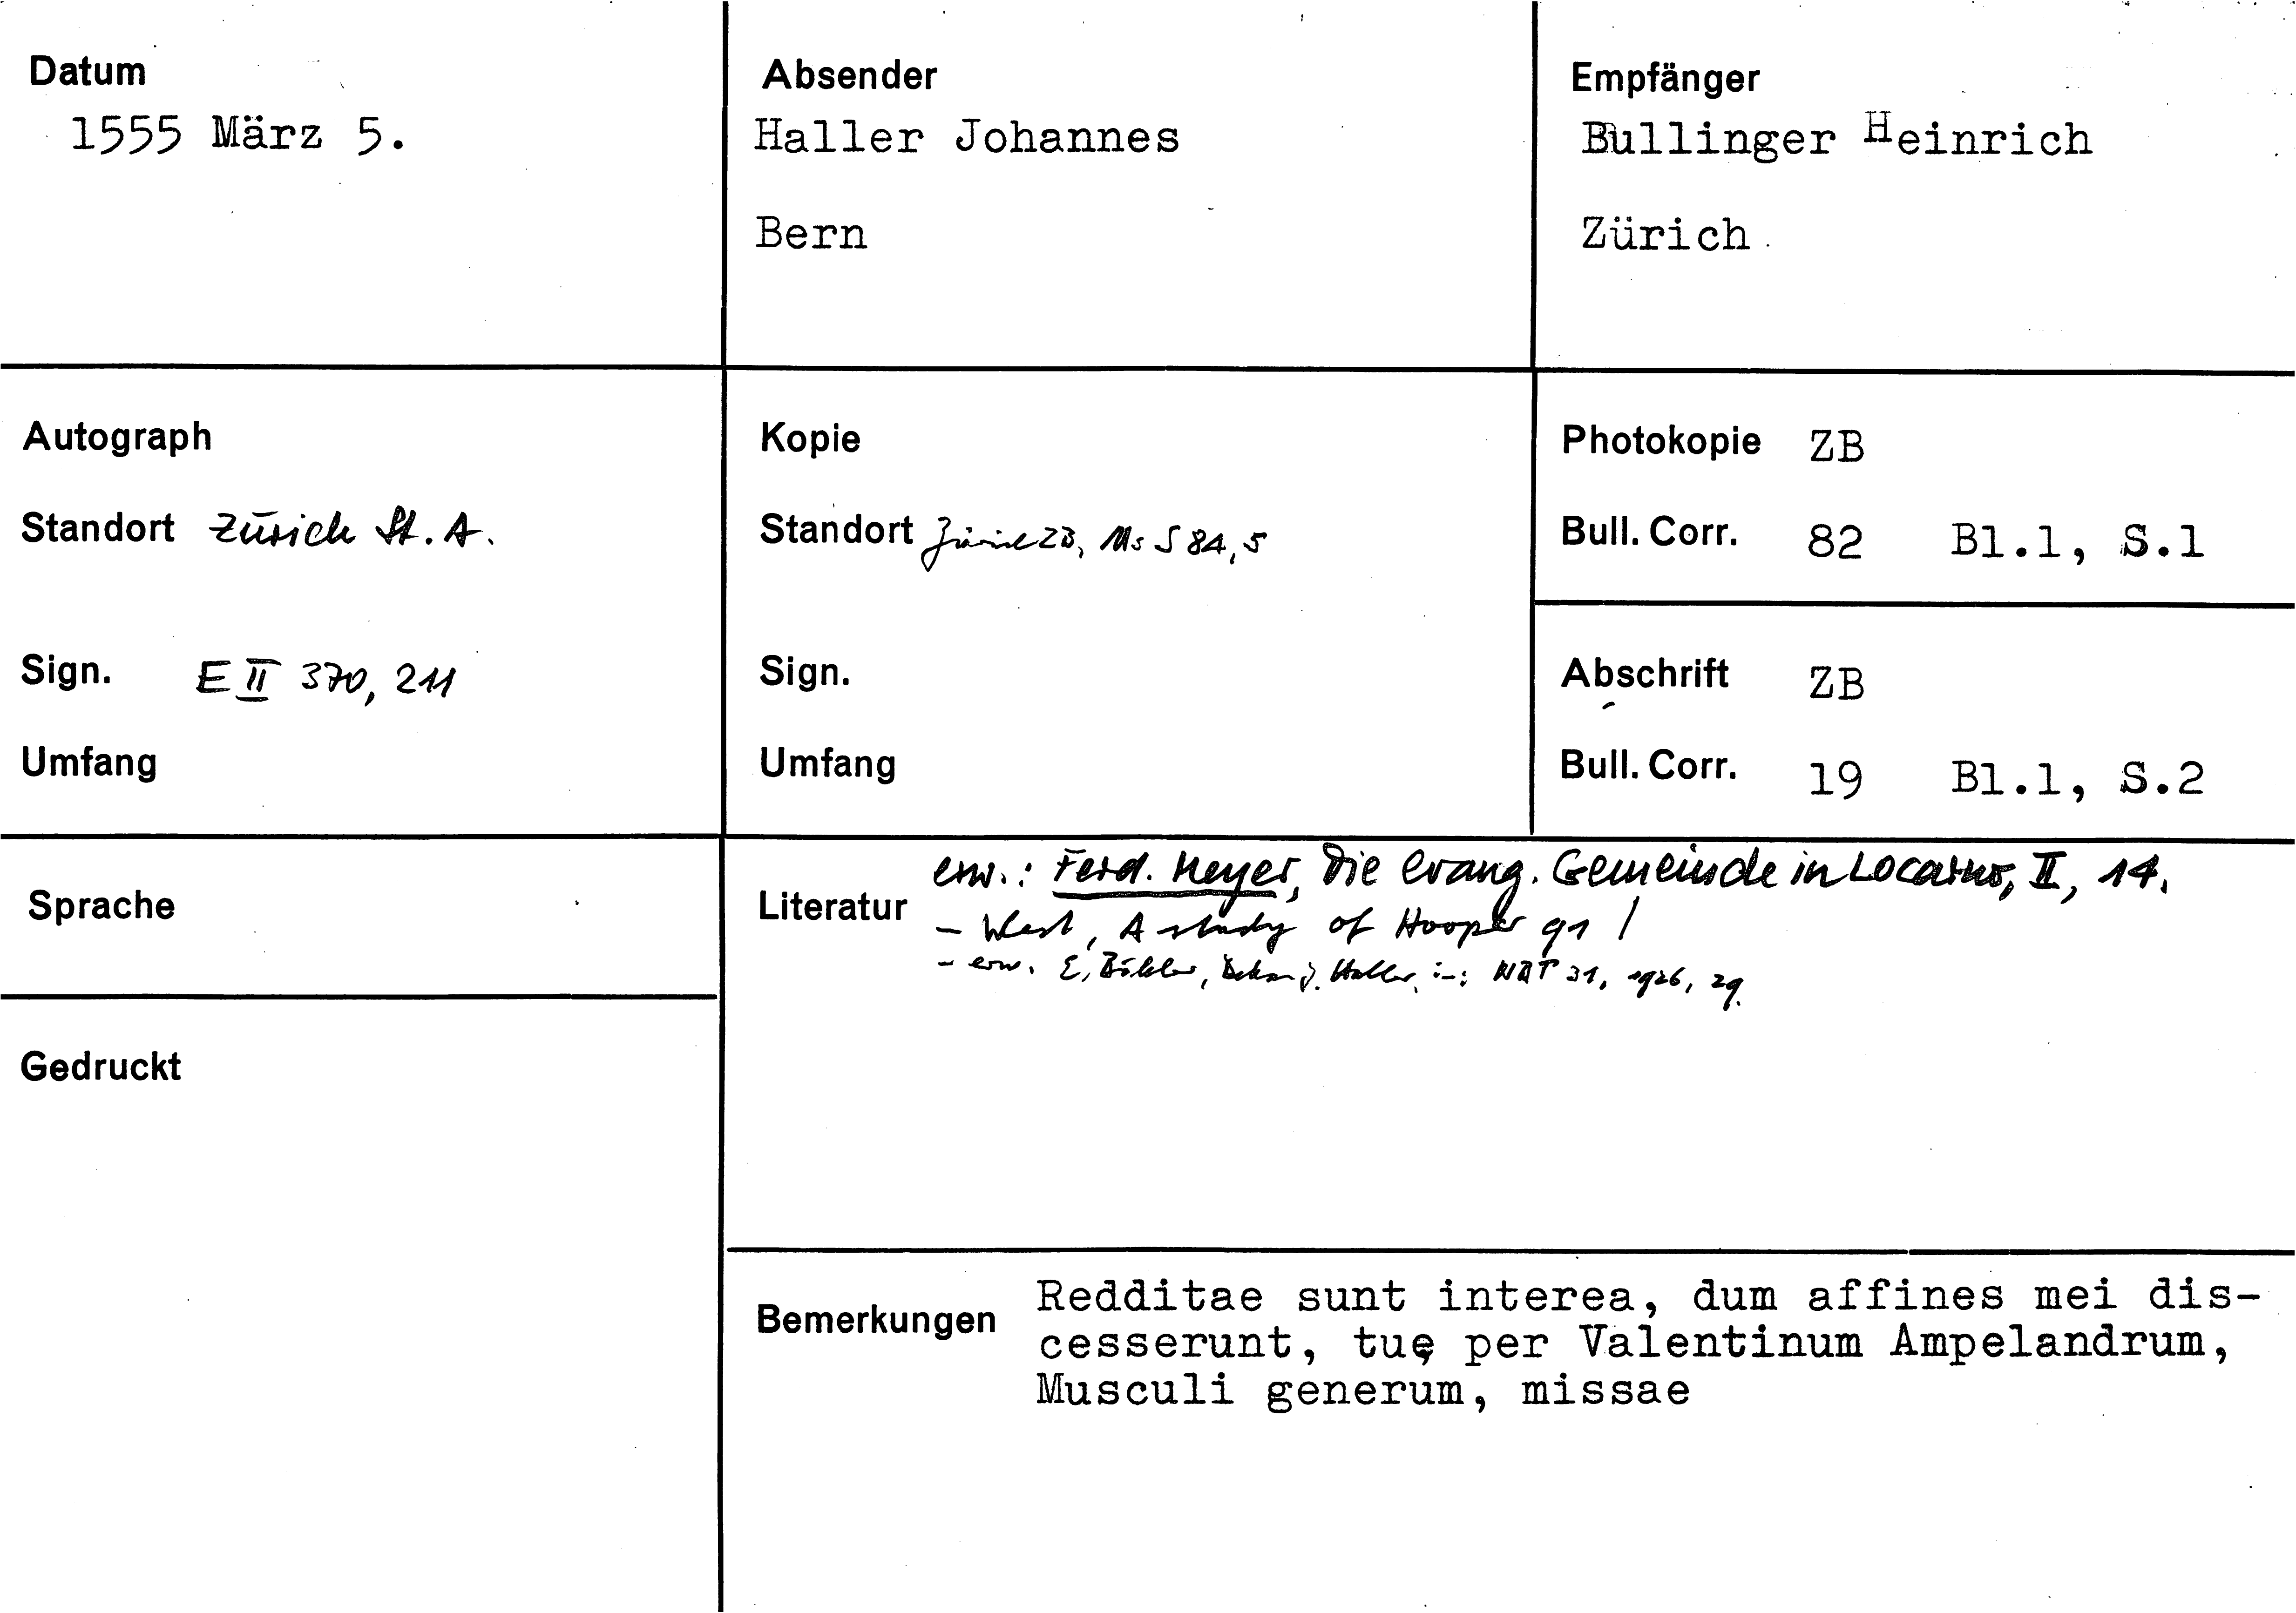 Datum
1555 März 5.
Absender
Haller Johannes
Bern
Empfänger
Bullinger Heinrich
Zürich
Autograph
Standort Zürich St. A.
Sign. E II 370, 211
Umfang
Kopie
Standort Zürich ZB, Ms S 84, 5
Sign.
Umfang
Photokopie ZB
Bull. Corr. 82 Bl.1, S.1
Abschrift ZB
Bull. Corr. 19 Bl.1, S.2
Sprache
Gedruckt
Literatur
erw.: Ferd. Meyer, Die evang. Gemeinde in Locarno, II, 14.
- West, A study of Hooper 91 /
- erw. E. Bähler, Dekan J. Haller, in: NBT 31, 1926, 29.
Bemerkungen
Redditae sunt interea, dum affines mei dis-
cesserunt, tuę per Valentinum Ampelandrum,
Musculi generum, missae